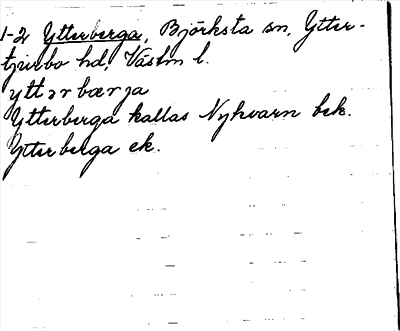 1-2 Ytterberga, Björksta sn, Ytter-
tjurbo hd, Västm l.
yttərbærja
Ytterberga kallas Nykvarn bek.
Ytterberga ek.